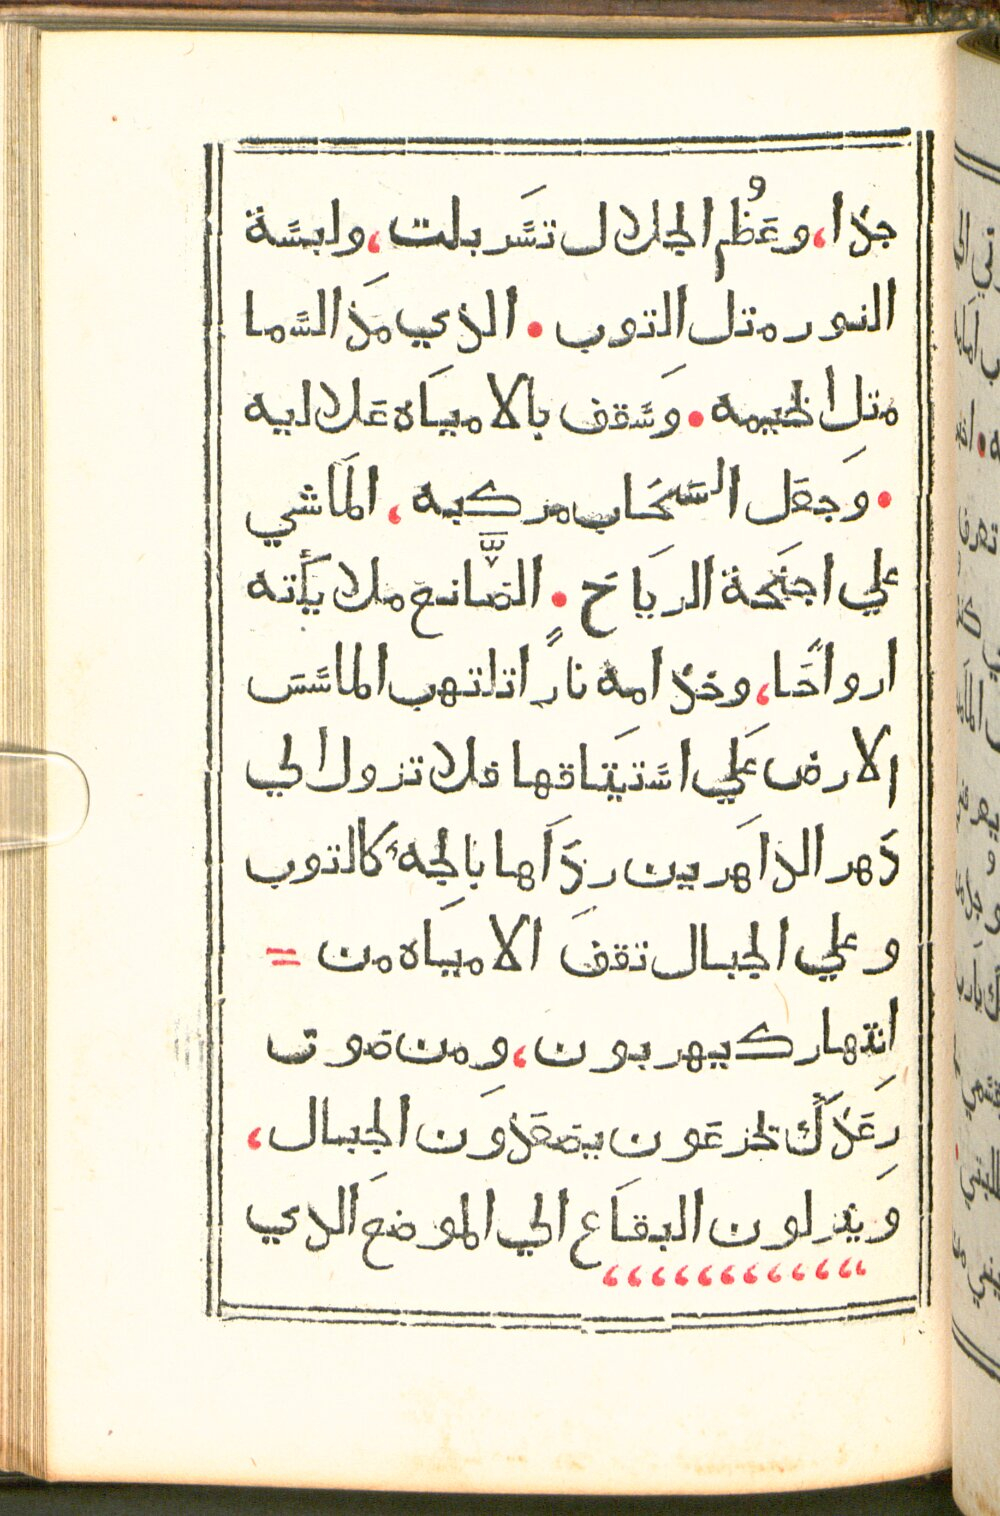 جدًا، وعَظُم الجلال تسَّربلت، ولبسَّة
النور متل التوب • الذي مَدَ السَّما
متل الخيمه • وَسَّقف بالامياَه عَلاليه
• وَجعَل السَّحَاب مركبه، الماَشي
علي اجنَحة الرياَح • الصَّانع ملائَته
ارواحًا، وخدامه نارًا تلتهب الماسَّسَ
الارض عَلي اسَّتيتَاقها فلا تزول الي
دَهر الداهَرين ردَاها بالجه كالتوب
وعلي الجبال تقفَ الامياَه من =
انتهارك يهربون، ومن صوت
رِعَدكً يَجزعَون يصعَدوَن الجبال،
وَينزلون البقاَع الي الموضعَ الدي
،،،،،،،،،،،،